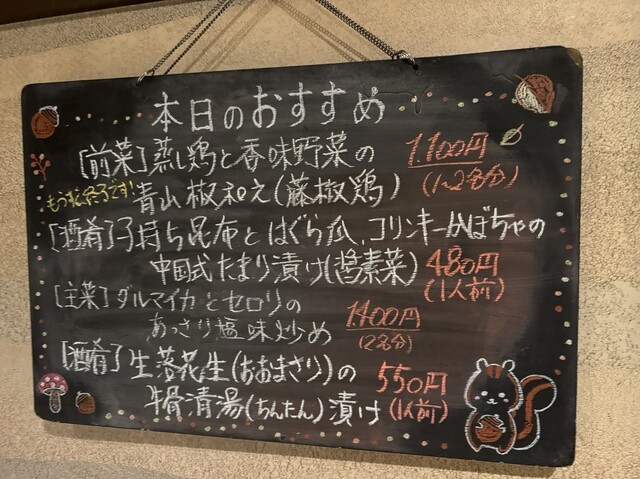 本日のおすすめ
[前菜]蒸し鶏と香味野菜の 1,100円
もうすぐ終了です! 青山椒和え(藤椒鶏) (1~2名分)
[酒肴]子持ち昆布とはぐら瓜、コリンキーかぼちゃの
中国式たまり漬け(醤素菜) 480円
(1人前)
[主菜]ダルマイカとセロリの 1,400円
あっさり塩味炒め (2名分)
[酒肴]生落花生(おおまさり)の 550円
牛骨清湯(ちんたん)漬け (1人前)